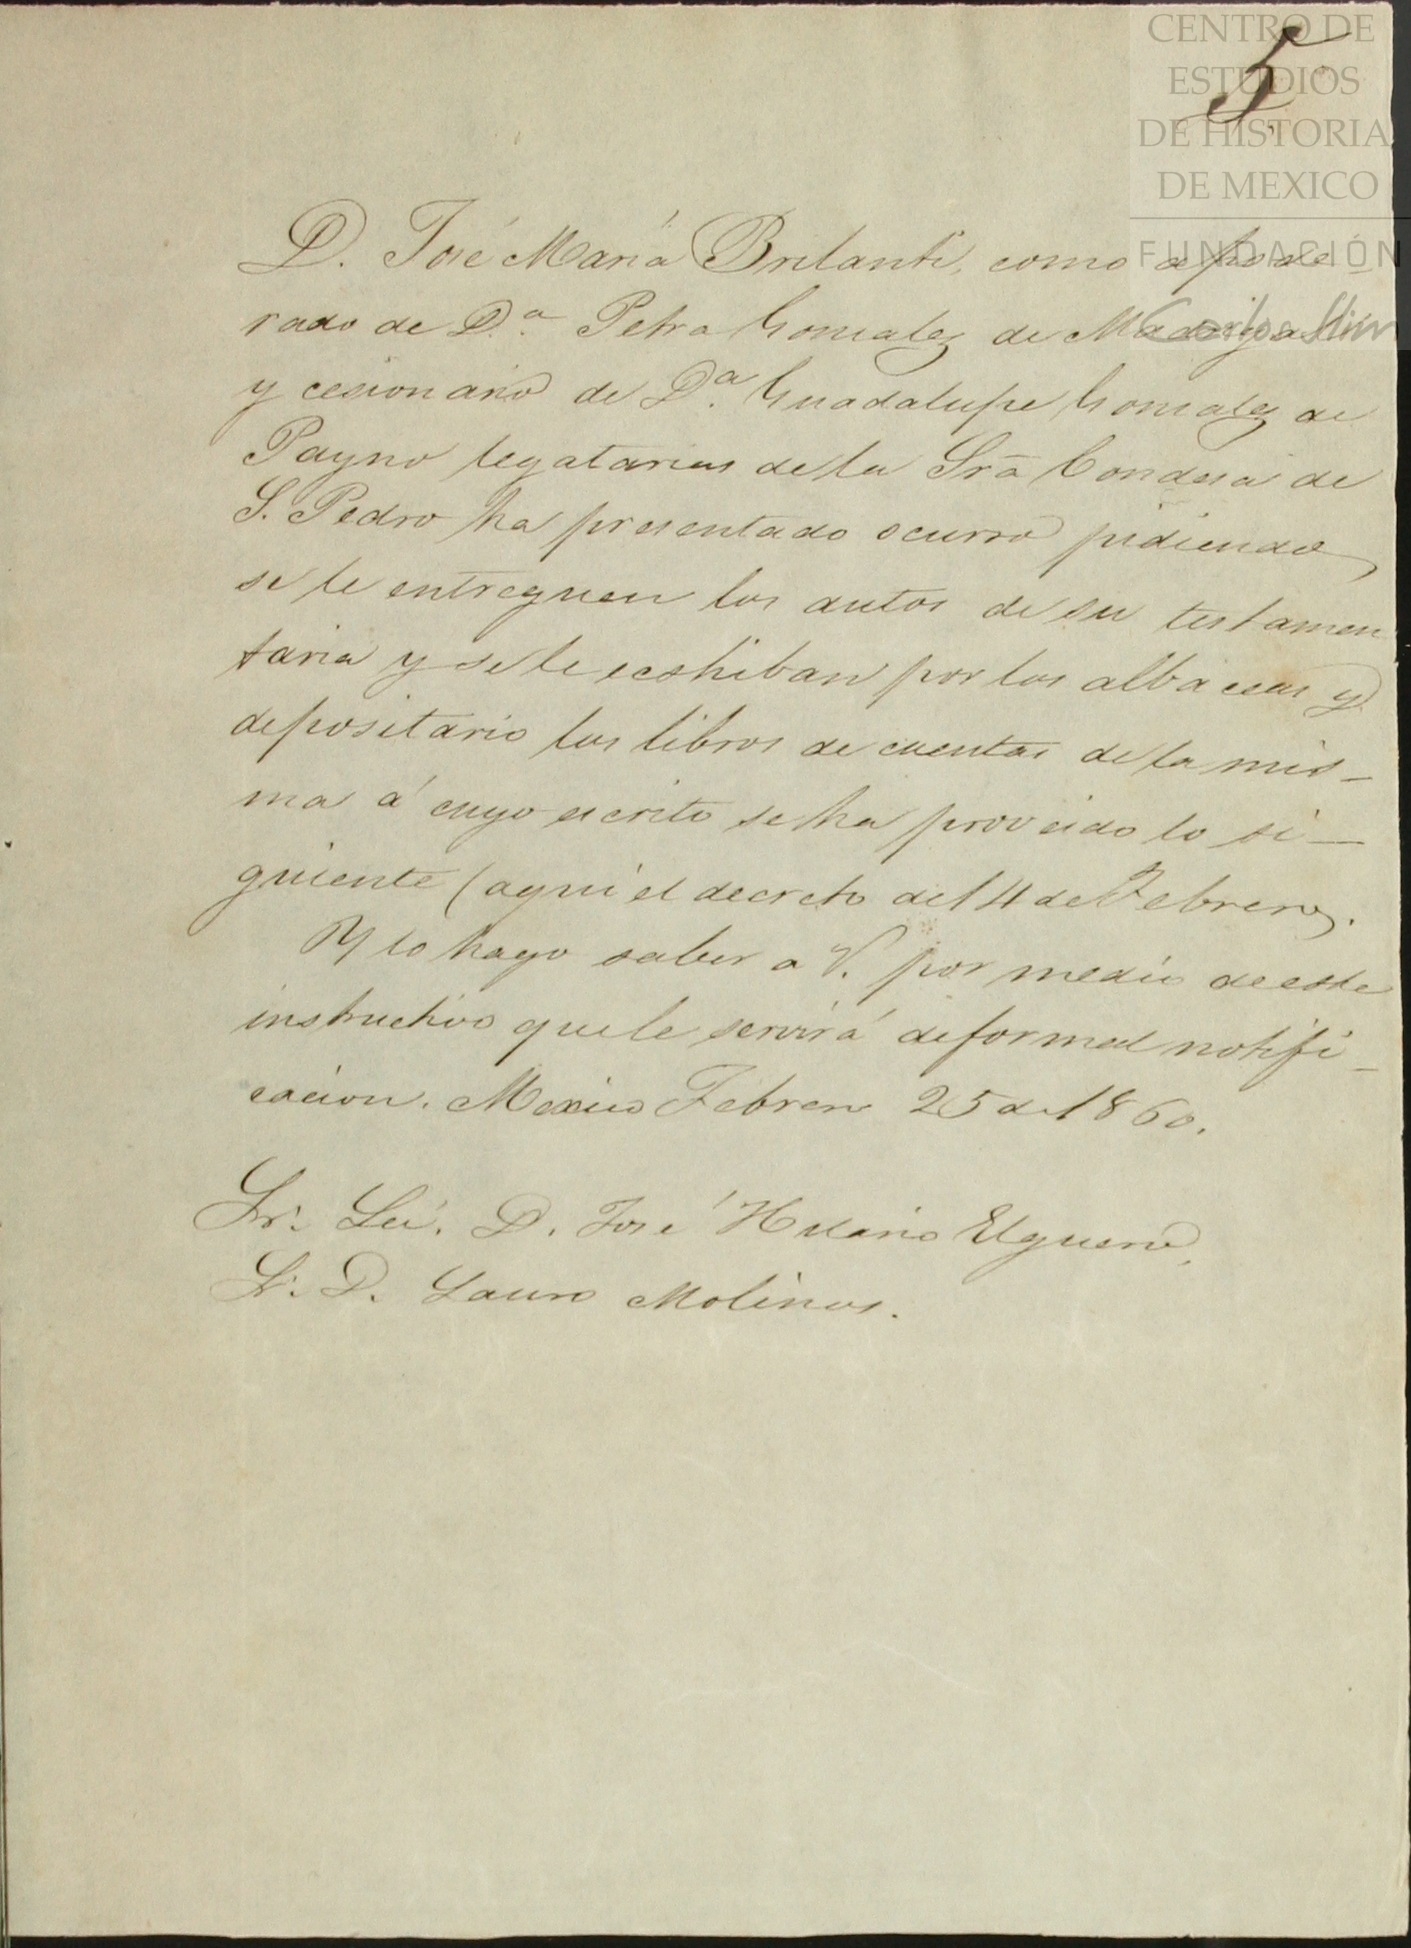 CENTRO DE
ESTUDIOS
DE HISTORIA
DE MEXICO
FUNDACIÓN
Carlos Slim
5
D. José María Brilanti, como apode_
rado de D.ª Petra Gonzalez de Madariaga
y cesionario de D.ª Guadalupe Gonzalez de
Payno legatarias de la Srã Condesa de
S. Pedro ha presentado ocurso pidiendo
se le entreguen los autos de su testamen
taria y se le ecshiban por los albaceas y
depositario los libros de cuentas de la mis_
ma á cuyo escrito se ha proveido lo si_
guiente (aqui el decreto del 4 de Febrero).
Y lo hago saber a V. por medio de este
instructivo que le servirá de formal notifi_
cacion. Mexico Febrero 25 de 1860.
Sr. Lic. D. José Hilario Elguero,
Sr. D. Lauro Molinos.